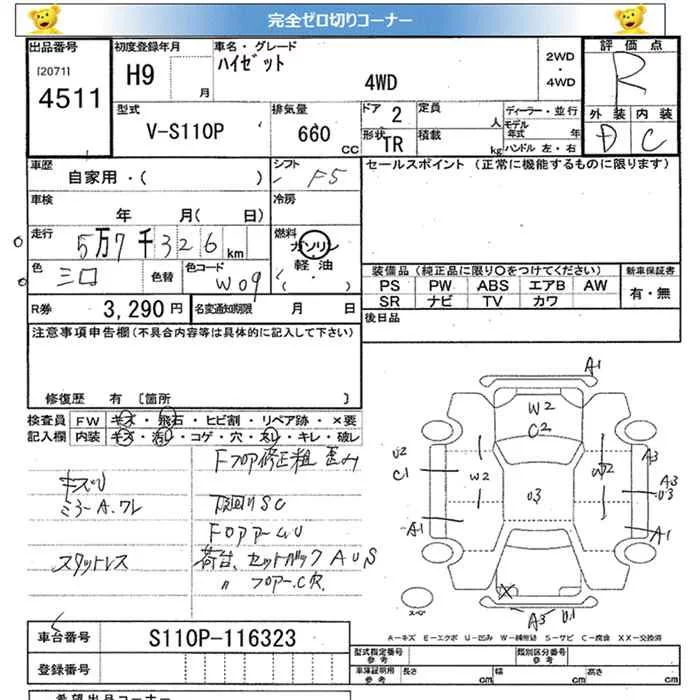 完全ゼロ切りコーナー
出品番号
[2071]
4511
初度登録年月
H9
月
車名・グレード
ハイゼット
4WD
2WD
・
4WD
評価点
R
外装
内装
D
C
型式
V-S110P
排気量
660
CC
ドア
2
形状
TR
定員
人
積載
kg
ディーラー・並行
モデル
年式
年
ハンドル 左・右
車歴
自家用・( )
シフト
F5
セールスポイント (正常に機能するものに限ります)
車検
年 月( 日)
冷房
走行
5万7千326km
燃料
ガソリン
軽油
( )
色
色替
色コード
W09
装備品 (純正品に限り○をつけてください)
PS PW ABS エアB AW
SR ナビ TV カワ
新車保証書
有・無
R券
3,290円
名変通知期限 月 日
後日品
注意事項申告欄(不具合内容等は具体的に記入して下さい)
修復歴 有 [箇所 ]
検査員
記入欄
FW キズ・飛石・ヒビ割・リペア跡・×要
内装 キズ・汚れ・コゲ・穴・スレ・キレ・破レ
Fフロア修正粗 歪み
キズU
ミラーA.ワレ
下回りSC
スタットレス
A1
W2
C2
U2
C1
W2
U3
W2
A3
A3
U3
A1
A1
X
A3
U1
スペア
A-キズ E-エクボ U-凹み W-補修跡 S-サビ C-腐食 XX-交換済
車台番号
S110P-116323
登録番号
型式指定番号
参考
類別区分番号
参考
車庫証明用
参考
長さ
cm
幅
cm
高さ
cm
希望出品コーナー